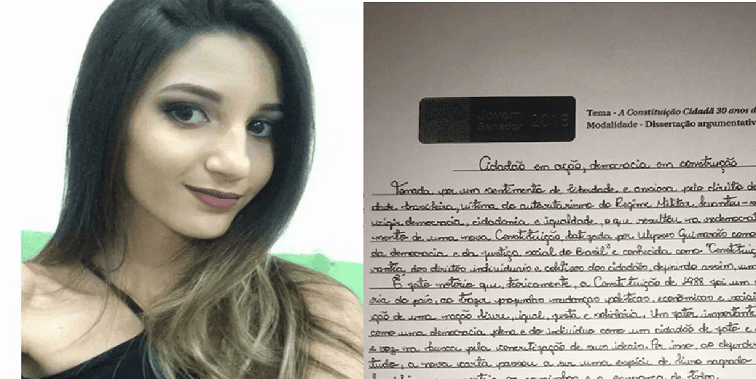 Jovem
Senador 2018
Tema - A Constituição Cidadã 30 anos d
Modalidade - Dissertação argumentativ
Cidadão em ação, democracia em construção
Tomada por um sentimento de liberdade e ansiosa pelo direito de
dade brasileira, vítima do autoritarismo do Regime Militar, levantou-
exigir democracia, cidadania e igualdade, o que resultou na redemocra
mento de uma nova Constituição, batizada por Ulysses Guimarães como
da democracia e da justiça social do Brasil" e conhecida como "Constituiç
rantia dos direitos individuais e coletivos dos cidadãos, deixando assim, um
É fato notório que, teoricamente, a Constituição de 1988 foi um
ria do país, ao trazer profundas mudanças políticas, econômicas e sociais
ção de uma nação livre, igual, justa e solidária. Um fator importante
como uma democracia plena e do indivíduo como um cidadão de fato e
e voz na busca pela concretização de seus ideais. Por isso, ao defender
tudo, a nova carta passou a ser uma espécie de livro sagrado
os caminhos e a esperança de todos.